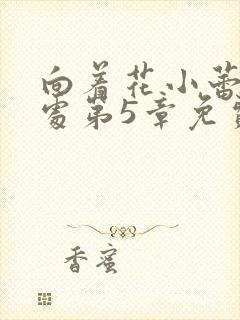 向着花小蕾
处第5章免费
香蜜